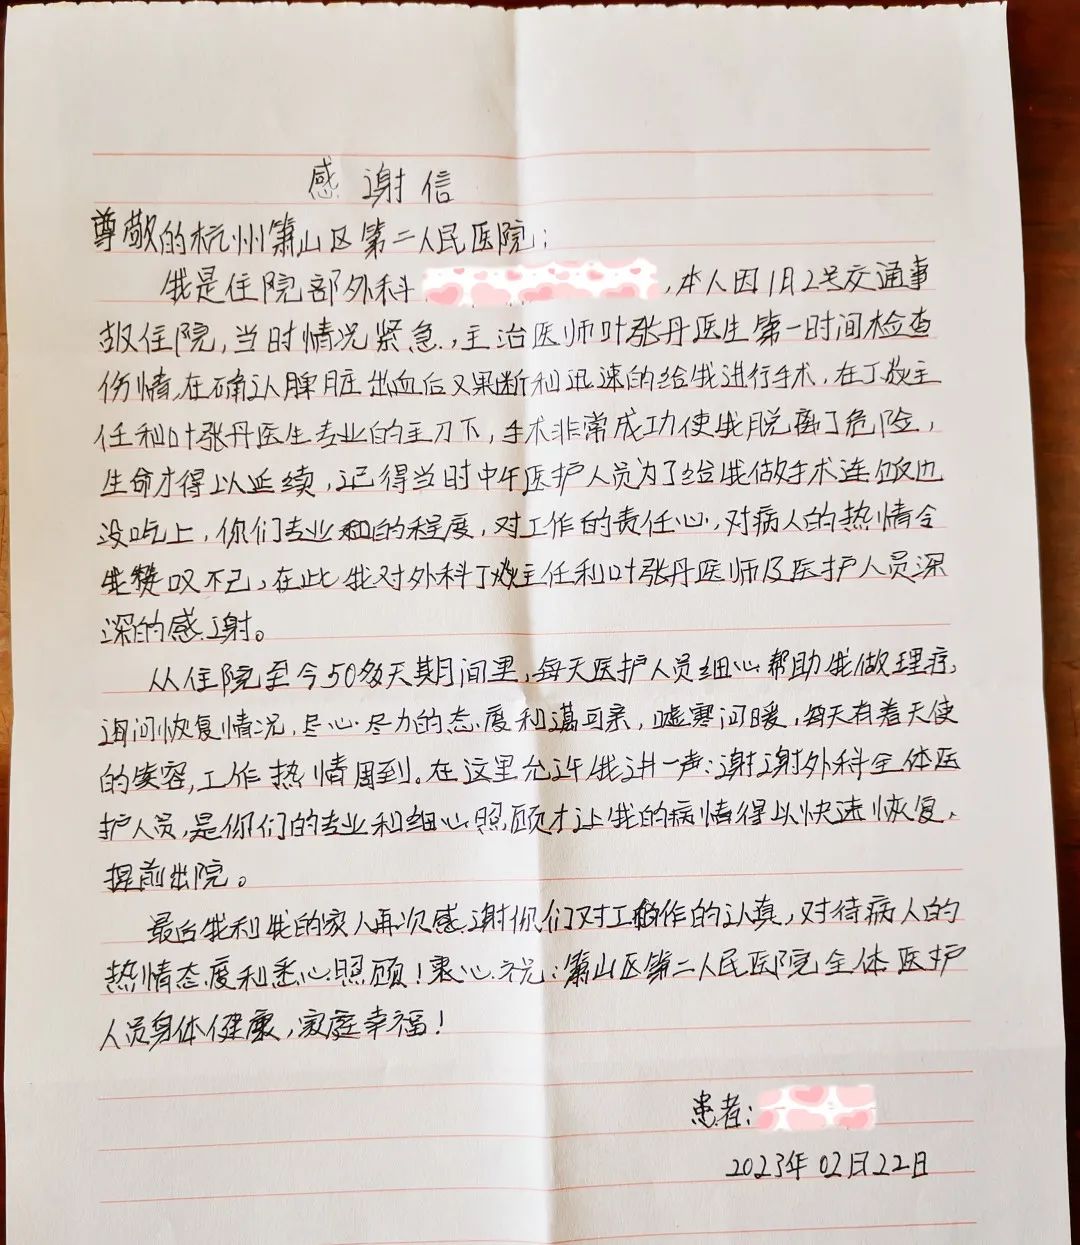 感谢信
尊敬的杭州萧山区第二人民医院：
我是住院部外科，本人因1月2号交通事
故住院，当时情况紧急，主治医师叶张丹医生第一时间检查
伤情，在确认脾脏出血后又果断和迅速的给我进行手术，在丁主
任和叶张丹医生专业的主刀下，手术非常成功使我脱离了危险，
生命才得以延续，记得当时中午医护人员为了给我做手术连饭也
没吃上，你们专业和的程度，对工作的责任心，对病人的热情令
我赞叹不已，在此我对外科丁主任和叶张丹医师及医护人员深
深的感谢。
从住院至今50多天期间里，每天医护人员细心帮助我做理疗，
询问恢复情况，尽心尽力的态度和蔼可亲，嘘寒问暖，每天有着天使
的笑容，工作热情周到。在这里允许我讲一声：谢谢外科全体医
护人员，是你们的专业和细心照顾才让我的病情得以快速恢复，
提前出院。
最后我和我的家人再次感谢你们对工作的认真，对待病人的
热情态度和悉心照顾！衷心祝：萧山区第二人民医院全体医护
人员身体健康，家庭幸福！
患者：
2023年02月22日